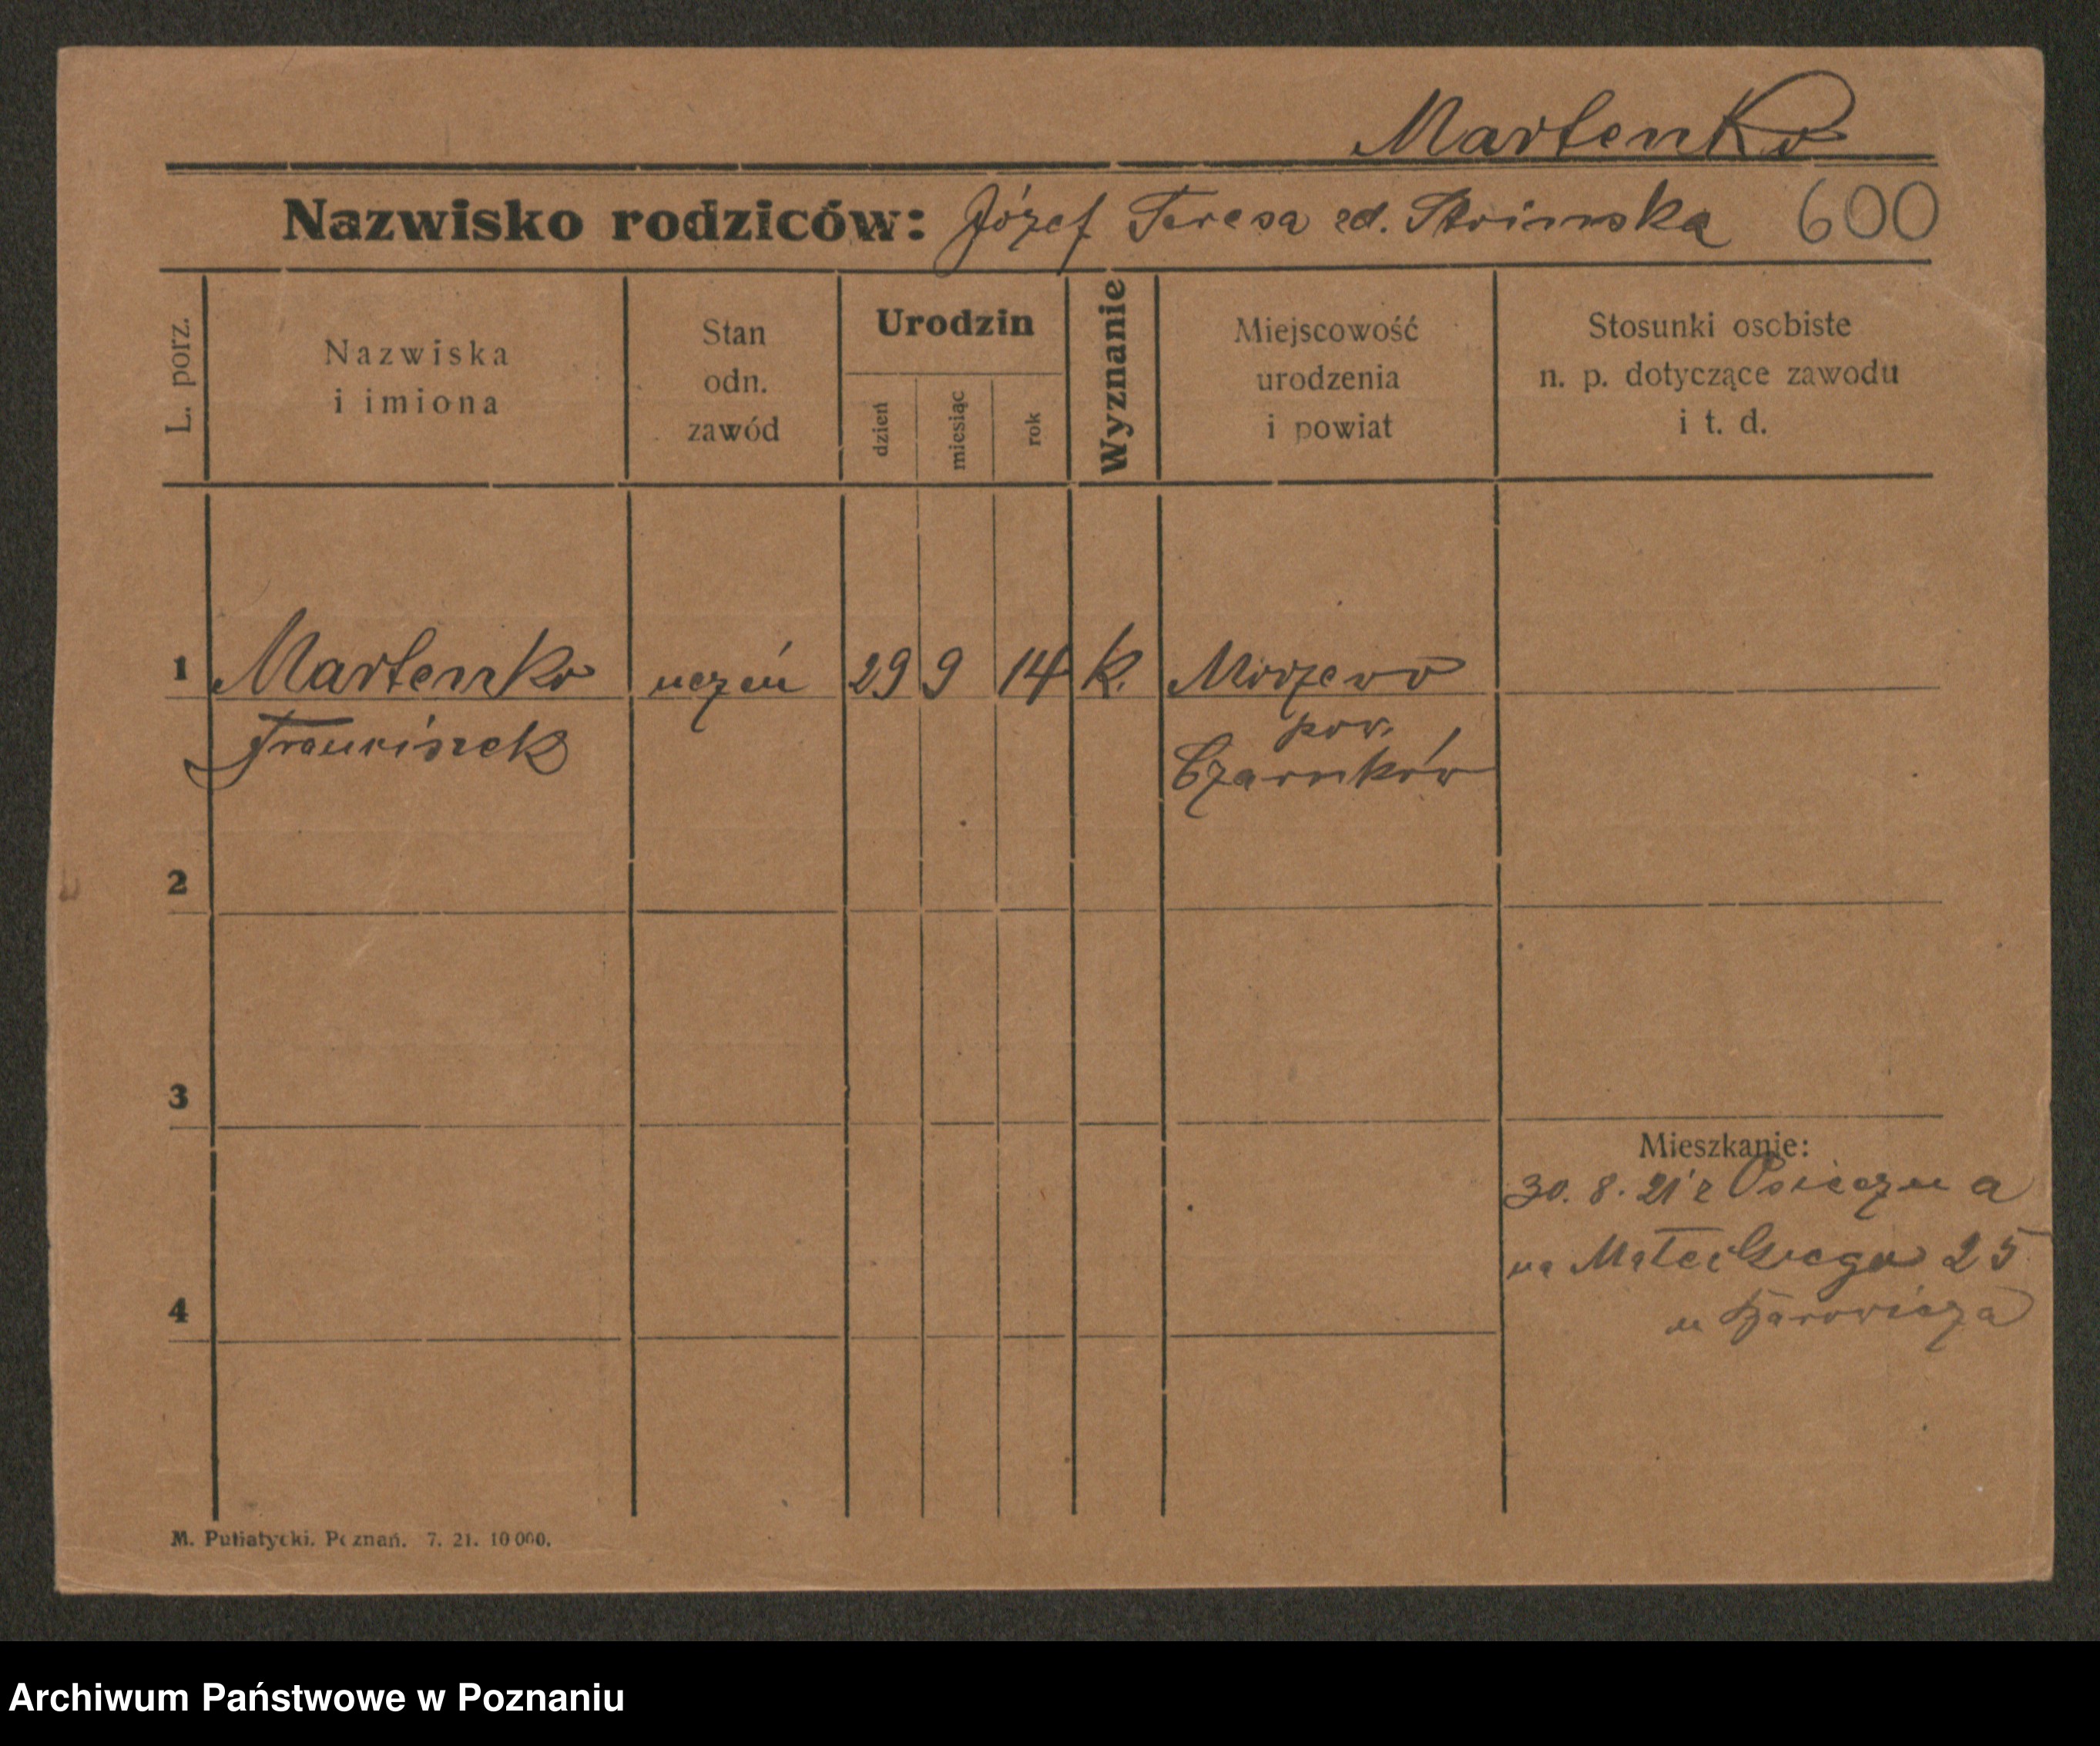 Martenko
Nazwisko rodziców: Józef Teresa zd. 600
L. porz.
Nazwiska
i imiona
Stan
odn.
zawód
Urodzin
dzień
miesiąc
rok
Wyznanie
Miejscowość
urodzenia
i powiat
Stosunki osobiste
n. p. dotyczące zawodu
i t. d.
1 Martenko uczeń 29 9 14 k.
Franciszek pow.
Czarnków
2
3
Mieszkanie:
30. 8. 21 z
na Mateckiego 25
4
u
M. Putiatycki. Poznań. 7. 21. 10 000.
Archiwum Państwowe w Poznaniu